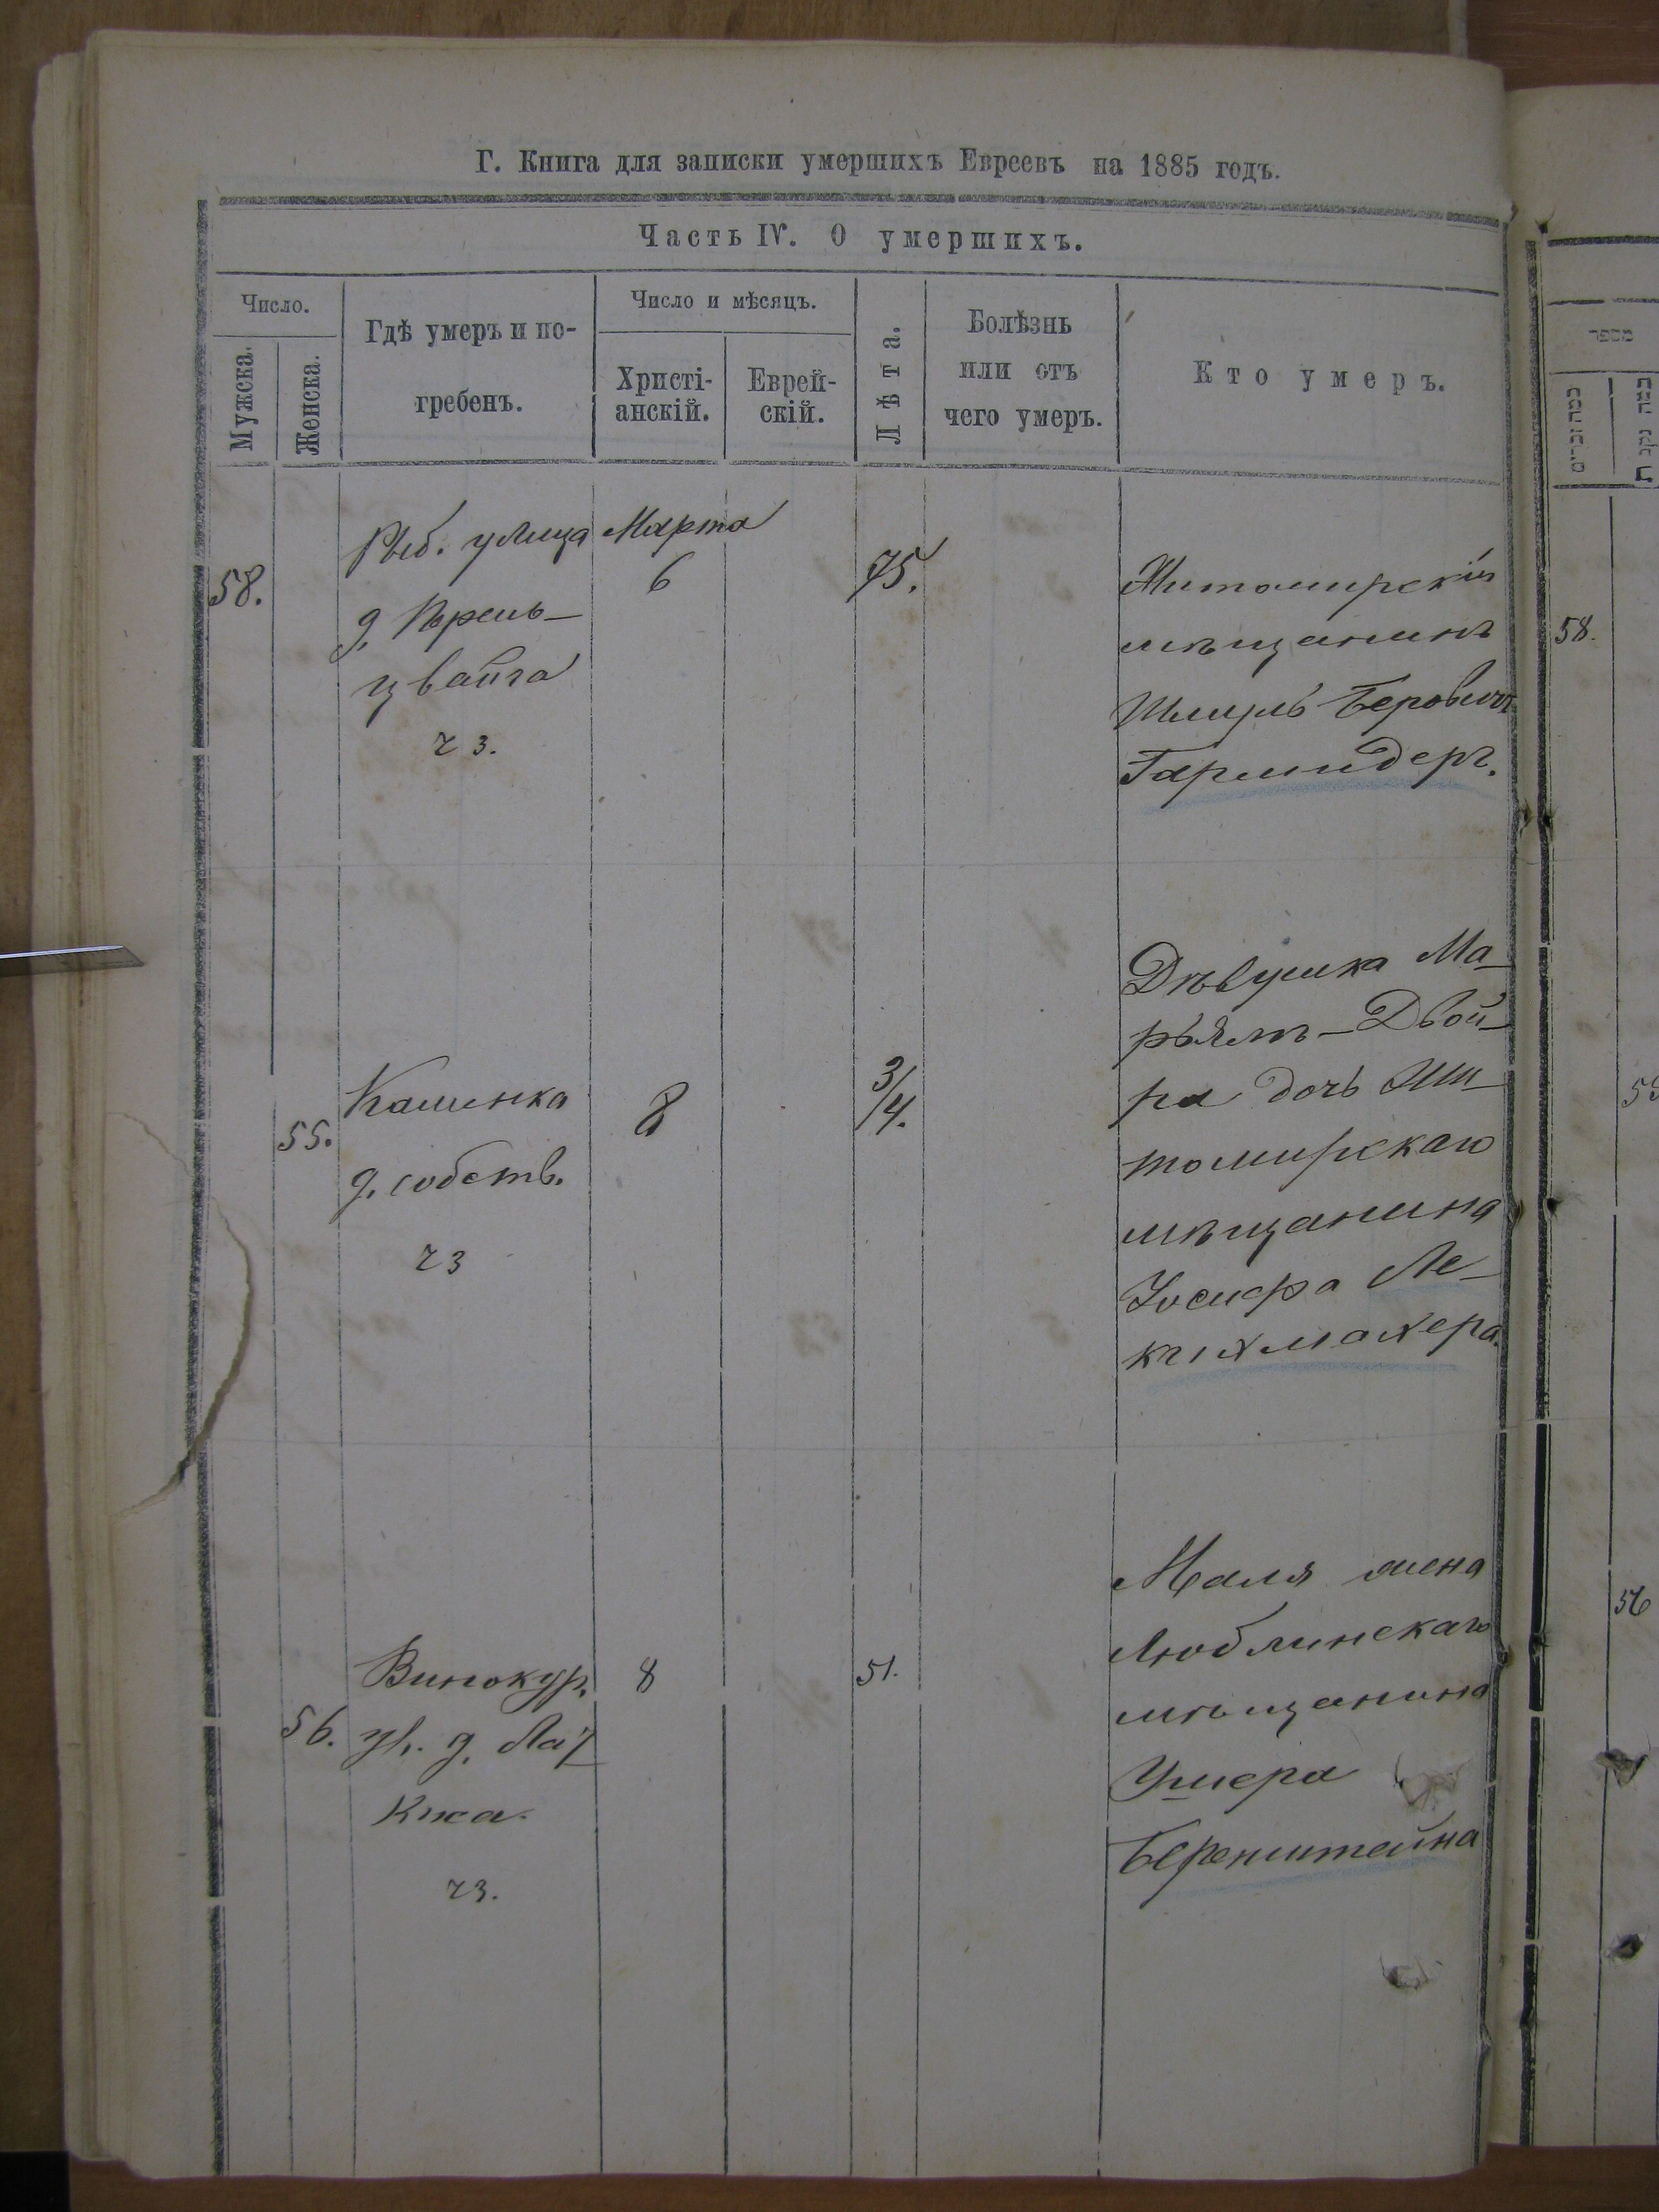 Г. Книга для записки умершихъ Евреевъ на 1885 годъ.
Часть IV. О умершихъ.
Число.
Мужска.
Женска.
Гдѣ умеръ и по-
гребенъ.
Число и мѣсяцъ.
Христі-
анскій.
Еврей-
скій.
Лѣта.
Болѣзнь
или отъ
чего умеръ.
Кто умеръ.
58.
Рыб. улица
д.
цвайга
Марта
6
75.
Житомирскій
мѣщанинъ
Шмуль Беровичъ
55.
Каменка
д. собств.
8
3/4.
Дѣвушка Ма-
рьямъ-Двой-
ра дочь Жи-
томирскаго
мѣщанина
Іосифа Ле-
кихмахера.
56.
Винокур.
ул. д.
8
51.
Маля жена
Люблинскаго
мѣщанина
Ушера
Беренштейна
מספר
58.
56